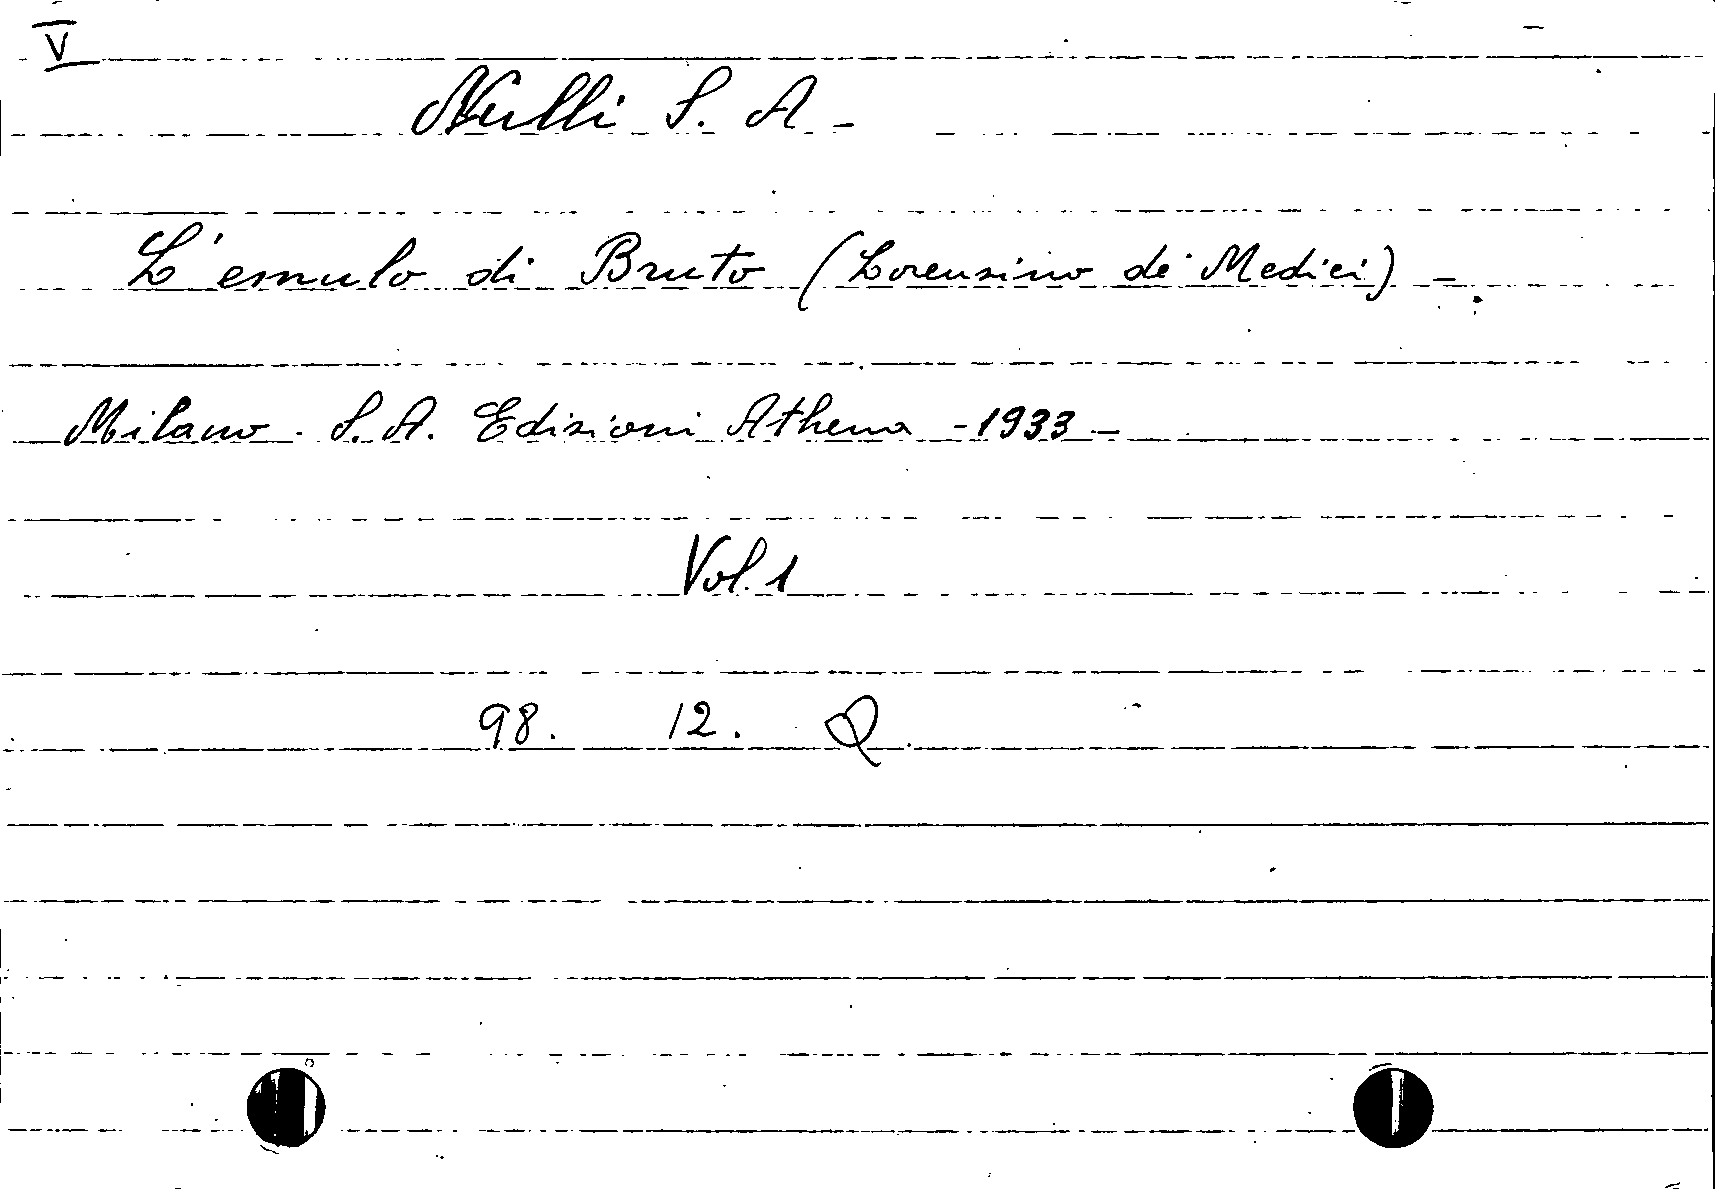 V
Nulli S. A -
L'emulo di Bruto (Lorenzino de' Medici) -
Milano. S. A. Edizioni Athena - 1933 -
Vol. 1
98. 12. Q